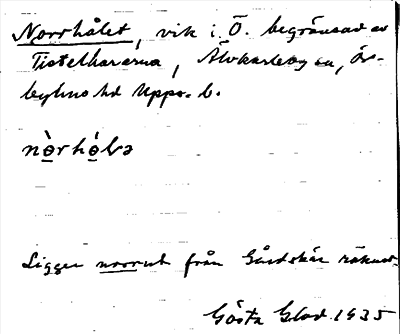 Norrhålet, vik i Ö. begränsad av
Tistelhararna, Älvkarleby sn, Ör-
byhus hd Upps. l.
nò̱rhó̱lə
Ligger norrut från Gårdskär räknat.
Gösta Glad 1935